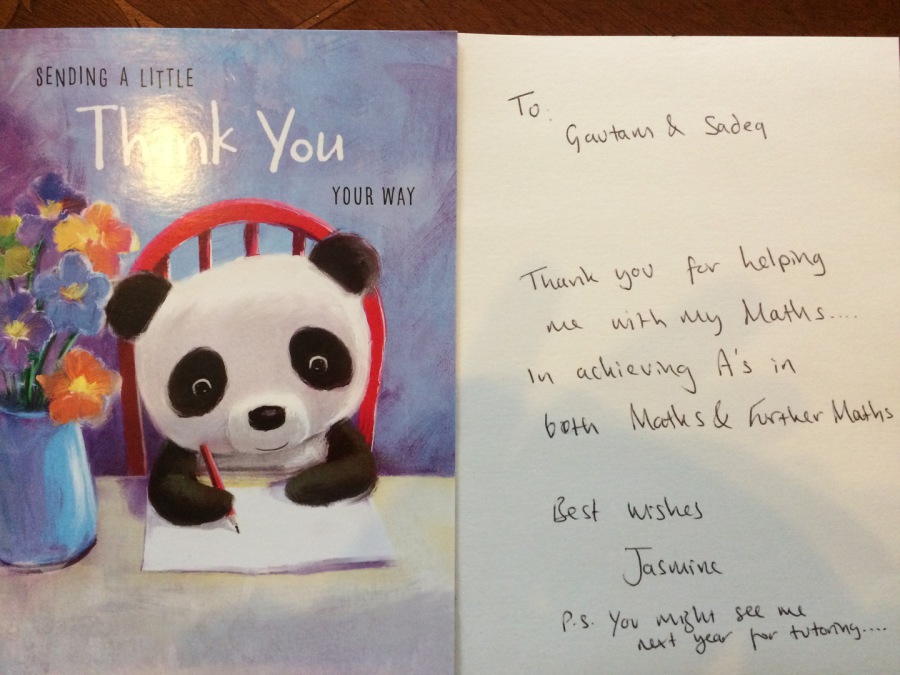 SENDING A LITTLE
Thank You
YOUR WAY
To:
Gautam & Sadeq
Thank you for helping
me with my Maths....
In achieving A's in
both Maths & Further Maths
Best wishes
Jasmine
P.S. You might see me
next year for tutoring....